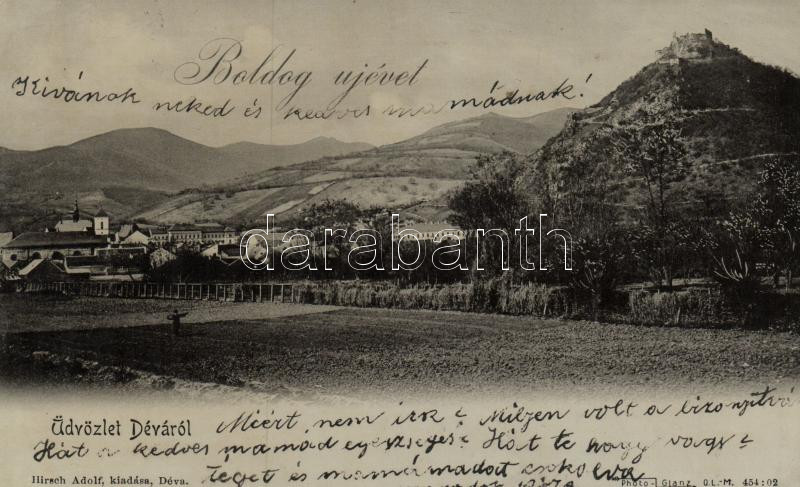 Boldog ujévet
Kivánok neked és kedves mamádnak!
darabanth
Üdvözlet Déváról
Miért nem irsz? Milyen volt a bizonyitvá
Hát a kedves mamád egészséges? Hát te hogy vagy?
Hirsch Adolf, kiadása, Déva.
téged és mamádat csokolva
Photo-Glanz O.L.-M. 454:02